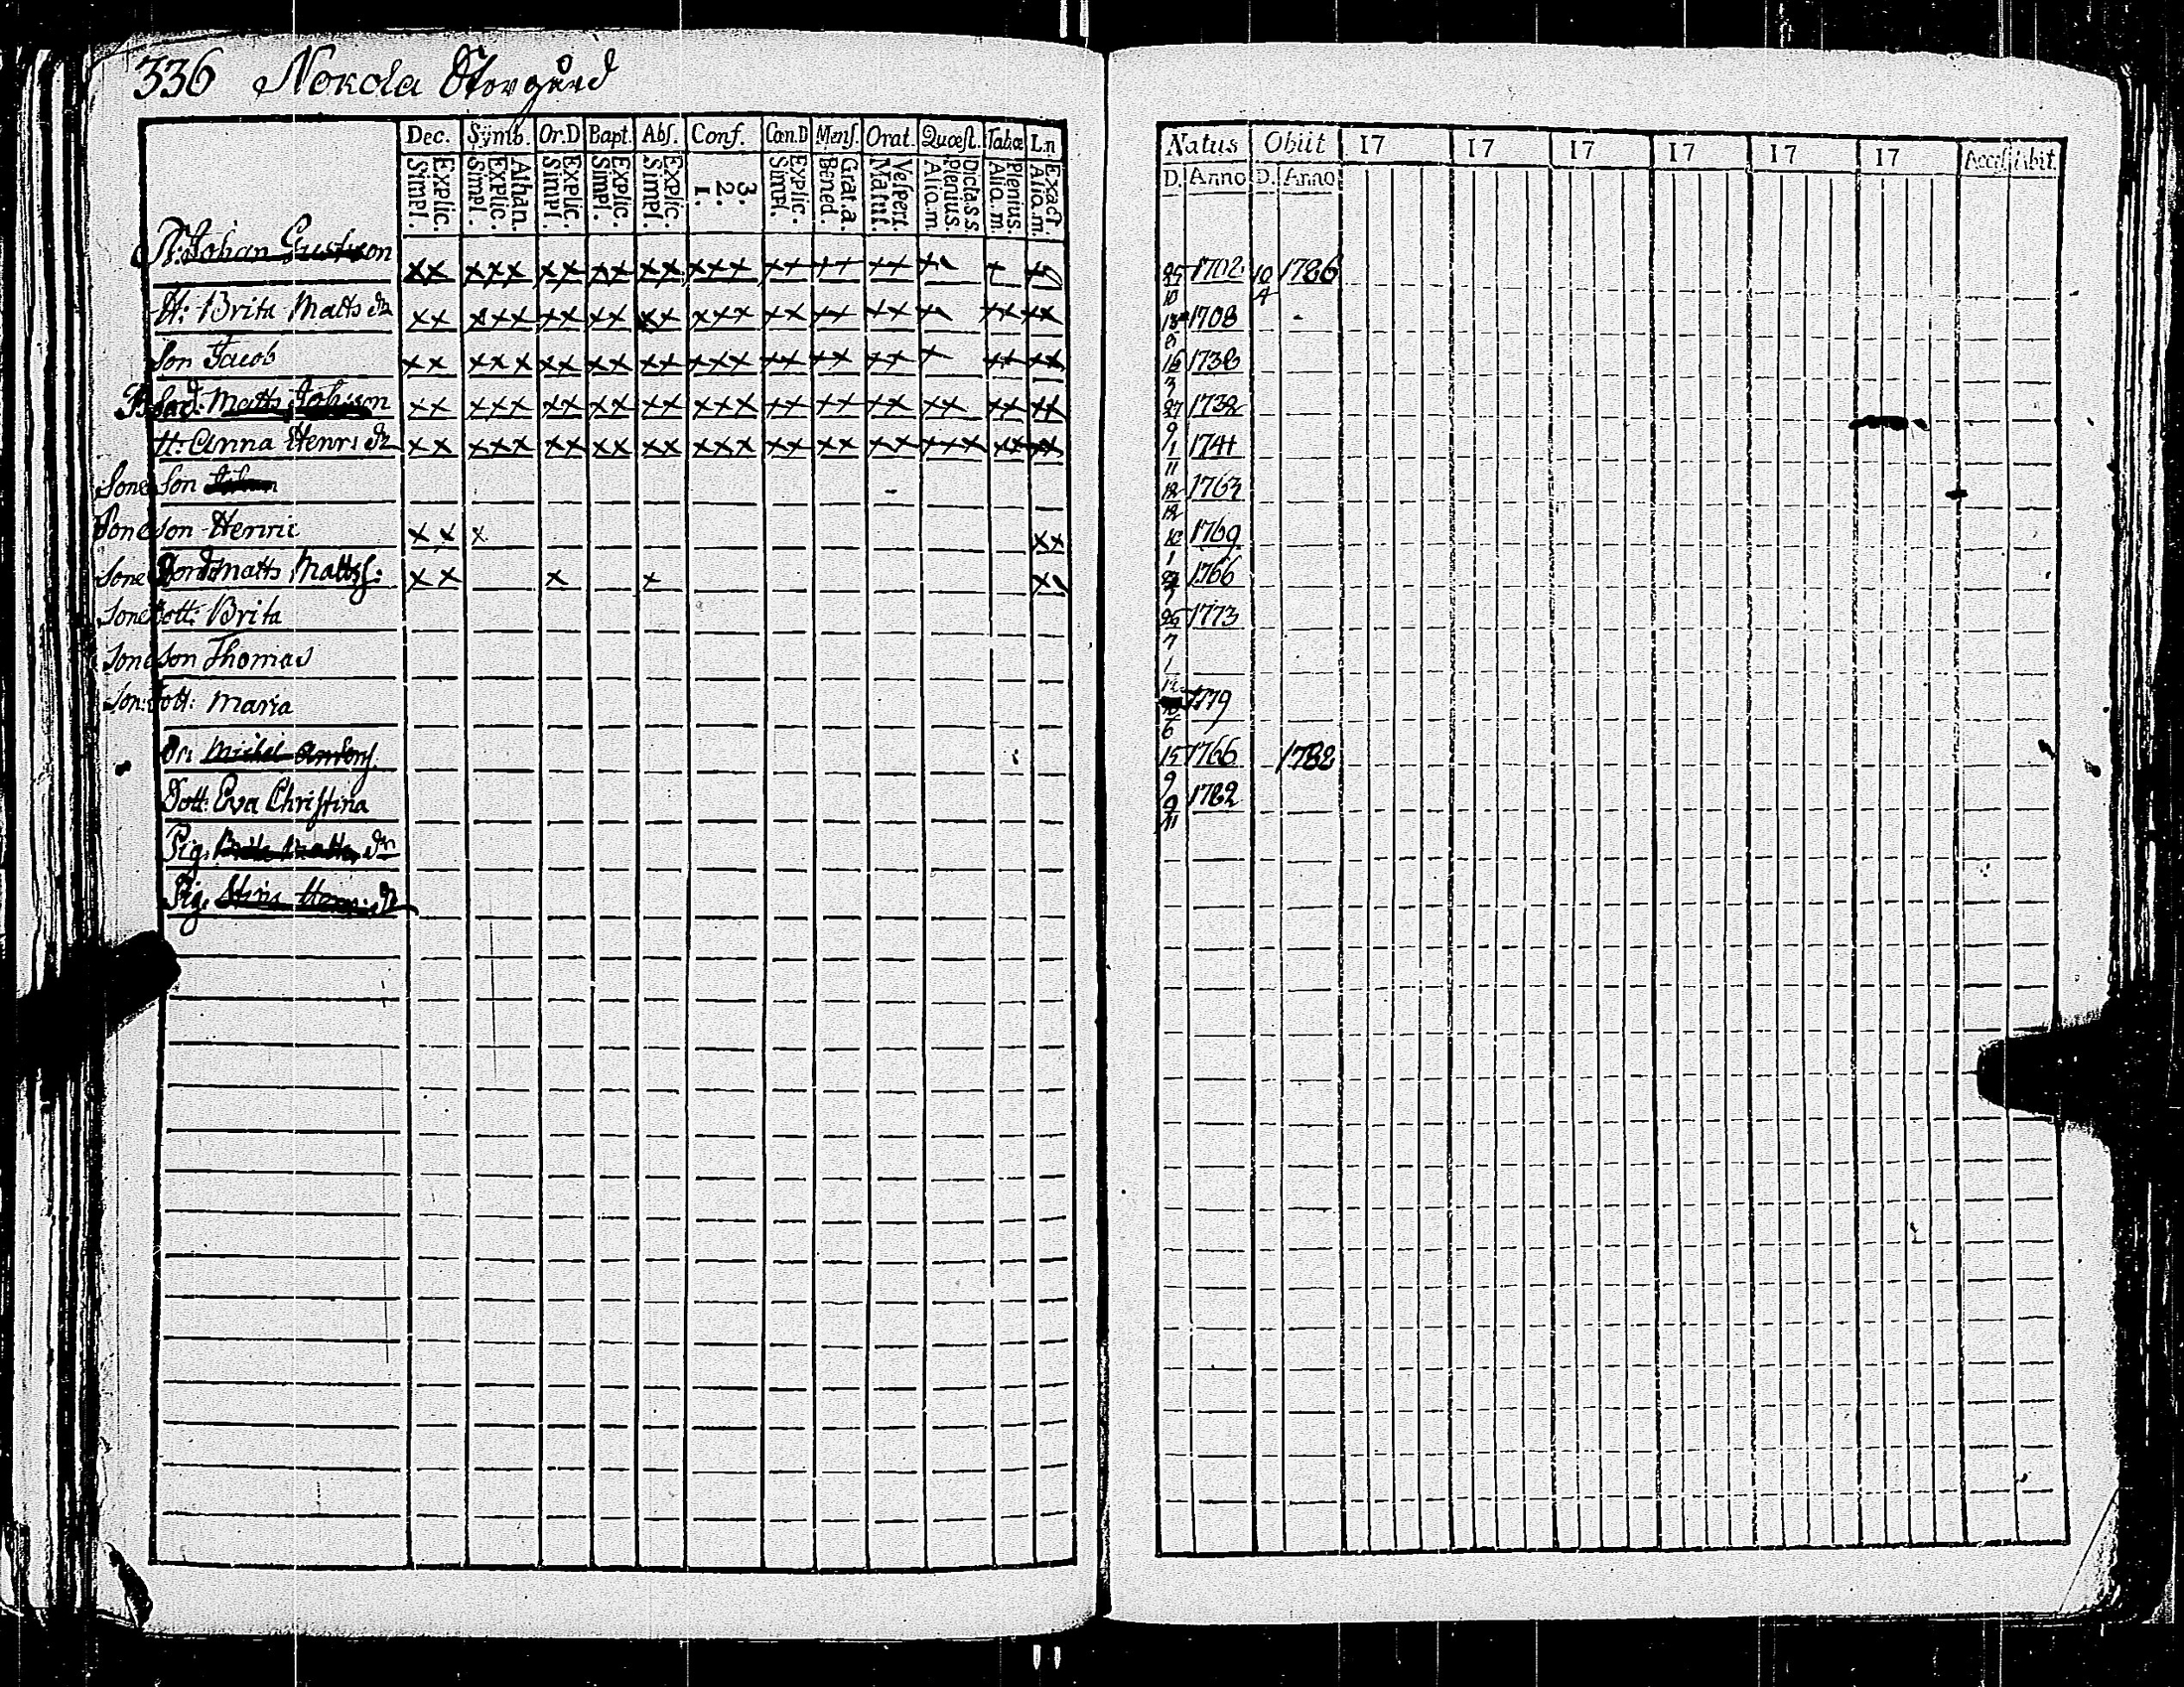 336 Nokola Storgård
Dec. Symb. Or.D Bapt. Abſ. Conf. Can.D Menſ. Orat. Quæſt. Tabæ L.n
Explic. Simpl. Athan. Explic. Simpl. Explic. Simpl Explic. Simpl. Explic. Simpl. 3. 2. 1. Explic. Simpl. Grat.a. Bened. Veſpert. Matut. Dicta.s.s Plenius. Aliq.m. Plenius. Aliq.m. Exact. Aliq.m.
Natus Obiit 17 17 17 17 17 17 Acceſ. Abit.
D. Anno D. Anno
Johan Gustfson xx xxx xx xx xx xxx xx xx xx x x x 25/10 1702 10/4 1786
H: Brita Matts dr xx xxx xx xx xx xxx xx xx xx x xx xx 1708
Son Jacob xx xxx xx xx xx xxx xx xx xx x xx xx 16/3 1738
Matts Johsson xx xxx xx xx xx xxx xx xx xx xx xx xx 27/9 1732
H: Anna Henr: dr xx xxx xx xx xx xxx xx xx xx xxx xx xx 1/11 1741
Sone Son 12/12 1763
Sone son Henric xx x xx 1769
Sone Matts Mattsſ: xx x x xx 1766
Sone dott: Brita 26/7 1773
Sone Son Thomas
Son: dott: Maria 1779
Michel 15/9 1766 1782
Dott: Eva Chriſtina 9/11 1782
Pig. dr
Pig. Stina Henr: dr